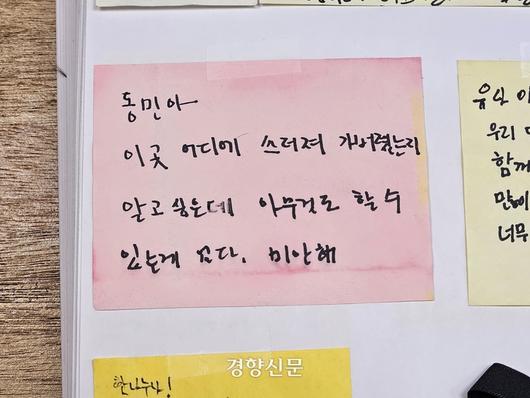 동민아
이곳 어디에 쓰러져 가버렸는지
알고 싶은데 아무것도 할 수
있는게 없다. 미안해
우리
함께
너무
한나누나!
경향신문